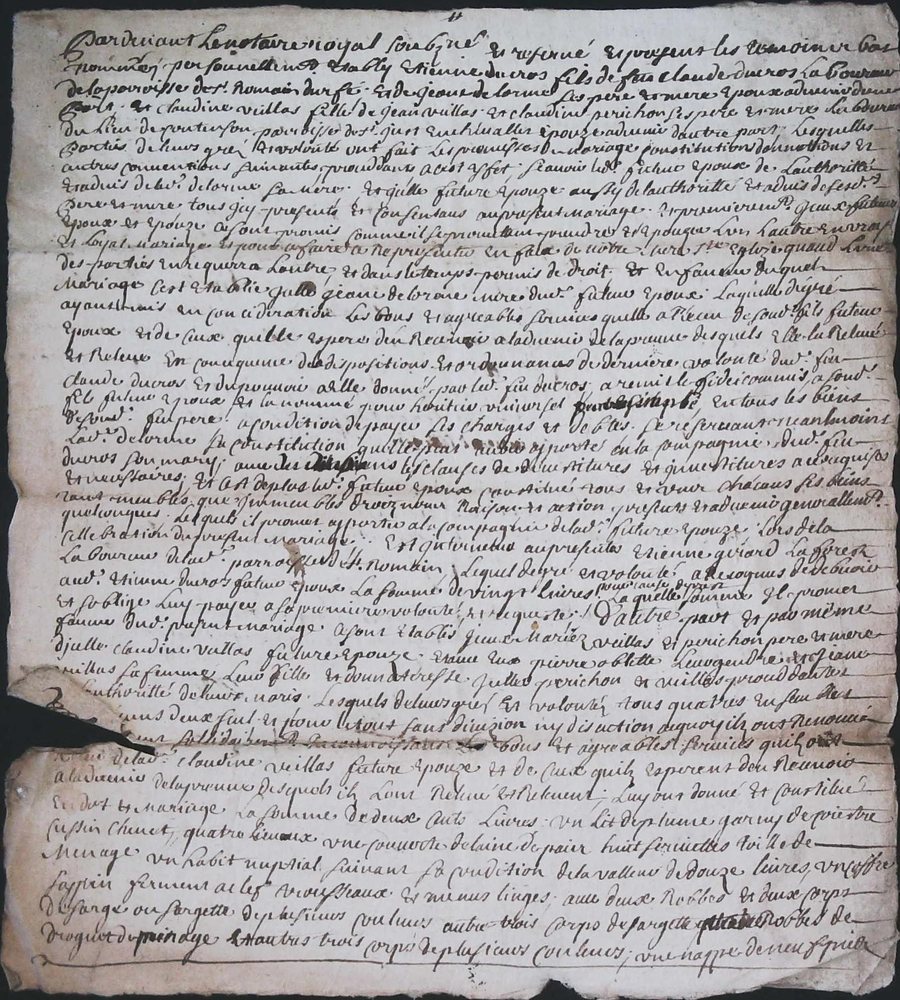 Pardevant Le notaire royal soubznê et reservé et present les tesmoins bas
nommés personnellemt estably Etienne ducros fils de feu Claude ducros Laboureur
de la parroisse de st Romain durfé et de Jeane delorme ses pere et mere epoux advenir dune
Part et claudine viellas fille de Jean viellas et claudine perichon ses pere et mere Laboureur
du Lieu de pouterson parroisse de st Just en chevallet epouze advenir dautre part Lesquelles
Parties de leurs gré et volonté ont fait Les promesses de mariage constitutions donnations et
autres conventions suivantes procédant a cest effet scavoir led futur epoux de Lauthorité
et advis de lad delorme sa mere et ycelle future epouze aussy de lauthorité et advis de sesd
Pere et mere tous icy presents et Consentans au present mariage et premieremt yceux futeurs
Epoux et epouze a sont promis comme il se promettent prendre et epouzer Lun Lautre en vray
et Loyal mariage et pour a faire a Representer en face de nôtre mere ste Eglize quand Lune
des parties en requerra Lautre et dans le temps permis de droit et en faveur duquel
Mariage cest establie ycelle Jeane delorme mere dud futur epoux Laquelle de gré
ayant mis en concideration Les bons et agreables services quelle a Receu de soud fils futeur
Epoux et de ceux quelle espere den Recevoir a ladvenir de la preuve desquels elle la Relevé
et Releve en consequence des dispositions et ordonnances de derniere volonté dud feu
Claude ducros et du pouvoir a elle donné par led feu ducros a remit le fideicommis a soud
fils futur epoux et la nommé pour heritier universel en tous les biens
de soud feu pere a condition de payer ses charges et debtes se reservant neanmoins
Lad delorme sa Constitution quelle peut avoir apporté en la compagnie dud feu
ducros son mary avec les clauses de devestitures et investitures a ce requises
et necessaires et cest de plus led futur epoux constitué tous et un chacuns ses biens
tant meubles que immeubles droits nom Raison et action presents et advenir generallemt
quelconques Lesquels il promet apporter a la compagnie de lad future epouze Lors de la
Cellebration du present mariage Est intervenu au presentes Etienne girard La forest
Laboureur de lad parroisse de st Romain Lequel de gré et volonté a Recognus de debvoir
aud Etienne ducros futur epoux La somme de vingt Livres pour cause de prest
et soblige Luy payer a sa premiere volonté et requeste Laquelle somme il promet
faveur dud present mariage a sont establis yceux mariez D'autre part et par même
dycelle claudine viellas future epouze et avec eux pierre oblette viellas et perichon pere et mere
viellas sa femme Leur fille et donnataresse ycelles perichon et viellas procédant de
authorité de leurs maris Lesquels de leurs gré et volonté tous quatres ensemble
deux seul et pour tous sans division ny discution a quoy ils ont Renoncé
solidairement Reconnoissans Les bons et agreables services quils ont
de lad Claudine viellas future epouze et de ceux quils esperent den Recevoir
a ladvenir de la preuve desquels ils Lont Relevé et Relevent Luy ont donné et constitué
en dot et mariage La somme de deux cents Livres un Lit de plume garny de
cussin chevet quatre linceux une couverte de laine de pair huit serviettes toille de
Menage un habit nuptial suivant sa condition de la valleur de douze livres un coffre
sappin fermant a clef trousseaux et menus linges avec deux Robbes et deux corps
de sarge ou sargette de plusieurs couleurs autre trois corps de sargette Robbes de
droguet de menage et autres trois corps de plusieurs couleurs une nappe de neuf